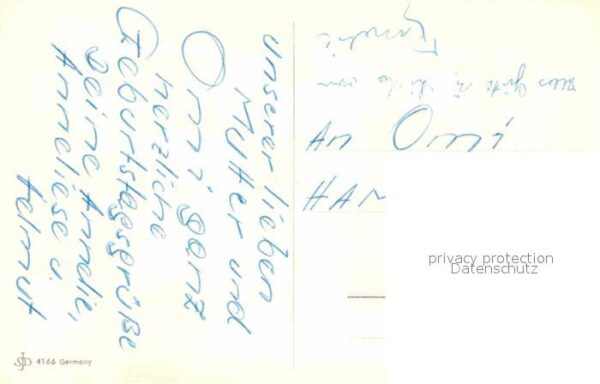 unserer lieben
Mutter und
Omi ganz
herzliche
Geburtstagsgrüße
Deine Anneliese u.
Helmut
An Omi
HAN
Alles Gute
privacy protection
Datenschutz
4166 Germany